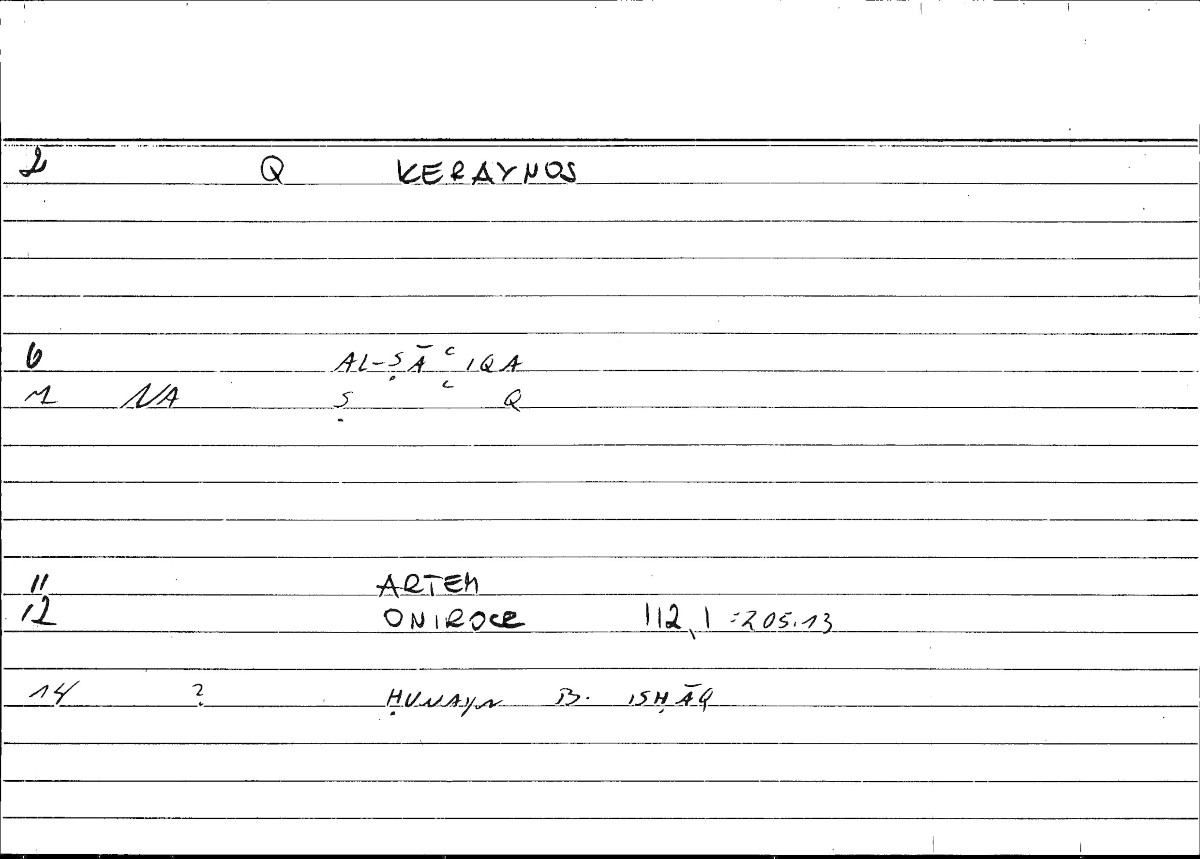 2 Q KERAYNOS
6 AL-ṢĀʿIQA
7 NA Ṣ ʿ Q
11 ARTEM
12 ONIROCR 112,1 = 205.13
14 ? ḤUNAYN B. ISḤĀQ